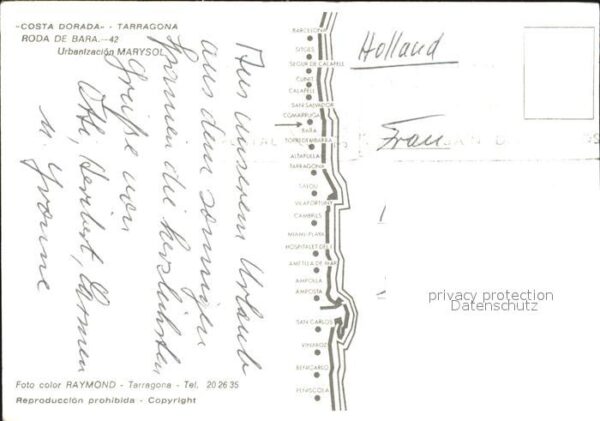 «COSTA DORADA» - TARRAGONA
RODA DE BARA.—42
Urbanización MARYSOL
Aus unserem Urlaub
aus dem sonnigen
Spanien die herzlichsten
Grüße von
Otti, Heribert, Carmen
u Yvonne
Foto color RAYMOND - Tarragona - Tel. 20 26 35
Reproducción prohibida - Copyright
BARCELONA
SITGES
SEGUR DE CALAFELL
CUNIT
CALAFELL
SAN SALVADOR
COMARRUGA
BARA
TORREDEMBARRA
ALTAFULLA
TARRAGONA
SALOU
VILAFORTUNY
CAMBRILS
MIAMI-PLAYA
HOSPITALET DE I.
AMETLLA DE MAR
AMPOLLA
AMPOSTA
SAN CARLOS
VINAROZ
BENICARLO
PEÑISCOLA
Holland
Frau
privacy protection
Datenschutz